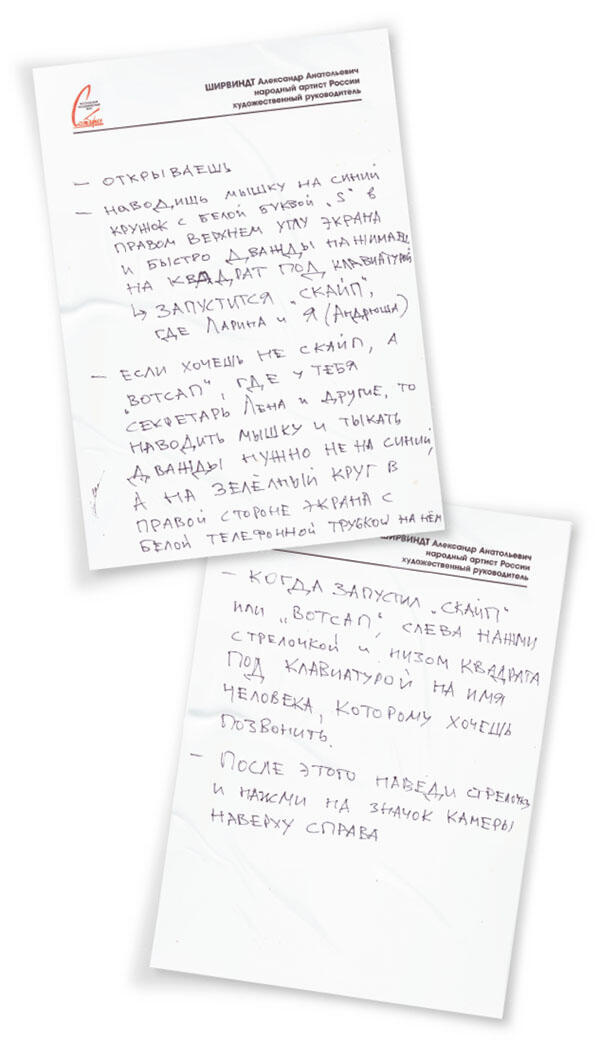 ШИРВИНДТ Александр Анатольевич
народный артист России
художественный руководитель
Сатиры
— ОТКРЫВАЕШЬ
— НАВОДИШЬ МЫШКУ НА СИНИЙ
КРУЖОК С БЕЛОЙ БУКВОЙ „S" В
ПРАВОМ ВЕРХНЕМ УГЛУ ЭКРАНА
И БЫСТРО ДВАЖДЫ НАЖИМАЕШЬ
НА КВАДРАТ ПОД КЛАВИАТУРОЙ
↳ ЗАПУСТИТСЯ „СКАЙП",
ГДЕ ЛАРИНА И Я (АНДРЮША)
— ЕСЛИ ХОЧЕШЬ НЕ СКАЙП, А
„ВОТСАП", ГДЕ У ТЕБЯ
СЕКРЕТАРЬ ЛЕНА И ДРУГИЕ, ТО
НАВОДИТЬ МЫШКУ И ТЫКАТЬ
ДВАЖДЫ НУЖНО НЕ НА СИНИЙ,
А НА ЗЕЛЁНЫЙ КРУГ В
ПРАВОЙ СТОРОНЕ ЭКРАНА С
БЕЛОЙ ТЕЛЕФОННОЙ ТРУБКОЙ НА НЁМ
ШИРВИНДТ Александр Анатольевич
народный артист России
художественный руководитель
— КОГДА ЗАПУСТИЛ „СКАЙП"
ИЛИ „ВОТСАП", СЛЕВА НАЖМИ
СТРЕЛОЧКОЙ И НИЗОМ КВАДРАТА
ПОД КЛАВИАТУРОЙ НА ИМЯ
ЧЕЛОВЕКА, КОТОРОМУ ХОЧЕШЬ
ПОЗВОНИТЬ.
— ПОСЛЕ ЭТОГО НАВЕДИ СТРЕЛОЧКУ
И НАЖМИ НА ЗНАЧОК КАМЕРЫ
НАВЕРХУ СПРАВА